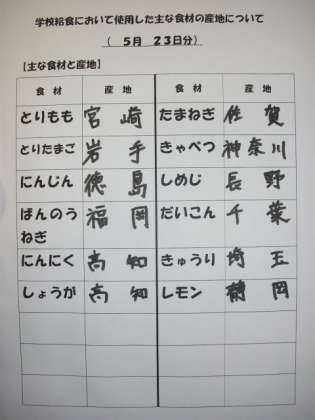 学校給食において使用した主な食材の産地について
( 5月 23日分)
【主な食材と産地】
食材 産地 食材 産地
とりもも 宮崎 たまねぎ 佐賀
とりたまご 岩手 きゃべつ 神奈川
にんじん 徳島 しめじ 長野
ばんのうねぎ 福岡 だいこん 千葉
にんにく 高知 きゅうり 埼玉
しょうが 高知 レモン 静岡